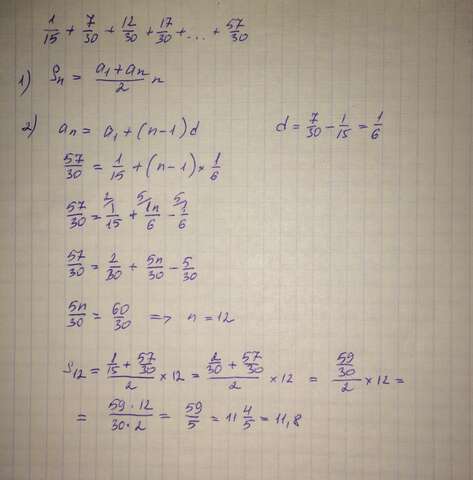 1/15 + 7/30 + 12/30 + 17/30 + ... + 57/30
1) Sn = (a1 + an)/2 n
2) an = a1 + (n-1) d d = 7/30 - 1/15 = 1/6
57/30 = 1/15 + (n-1) × 1/6
57/30 = 2/ 1/15 + 5/ 1n/6 - 5/ 1/6
57/30 = 2/30 + 5n/30 - 5/30
5n/30 = 60/30 => n = 12
S12 = (1/15 + 57/30)/2 × 12 = (2/30 + 57/30)/2 × 12 = (59/30)/2 × 12 =
= (59 · 12)/(30 · 2) = 59/5 = 11 4/5 = 11,8